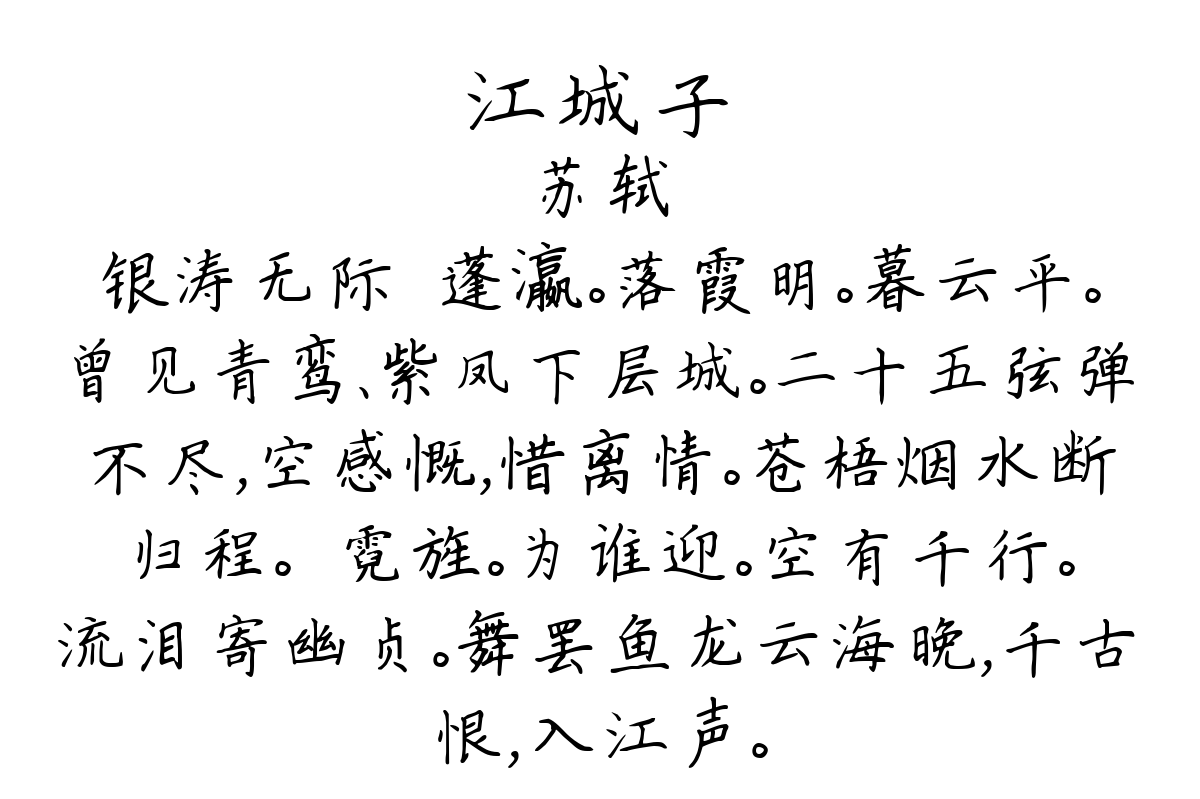 江城子
苏轼
银涛无际 蓬瀛。落霞明。暮云平。
曾见青鸾、紫凤下层城。二十五弦弹
不尽,空感慨,惜离情。苍梧烟水断
归程。 霓旌。为谁迎。空有千行。
流泪寄幽贞。舞罢鱼龙云海晚,千古
恨,入江声。